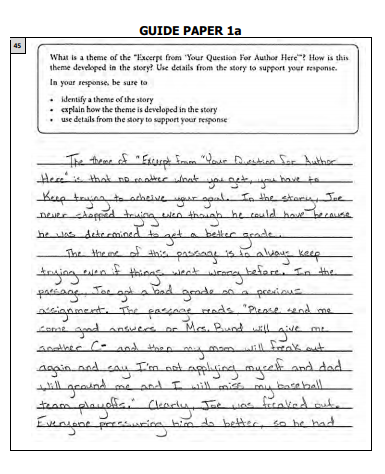 GUIDE PAPER 1a
45
What is a theme of the "Excerpt from 'Your Question For Author Here'"? How is this
theme developed in the story? Use details from the story to support your response.
In your response, be sure to
• identify a theme of the story
• explain how the theme is developed in the story
• use details from the story to support your response
The theme of "Excerpt from "Your Question For Author
Here" is that no matter what you get, you have to
Keep trying to acheive your goal. In the story, Joe
never stopped trying even though he could have because
he was determined to get a better grade.
The theme of this passage is to always keep
trying even if things went wrong before. In the
passage, Joe got a bad grade on a previous
assignment. The passage reads "Please send me
some good answers or Mrs. Bund will give me
another C- and then my mom will freak out
again and say I'm not applying myself and dad
will ground me and I will miss my baseball
team playoffs." Clearly, Joe was freaked out.
Everyone pressuring him to do better, so he had